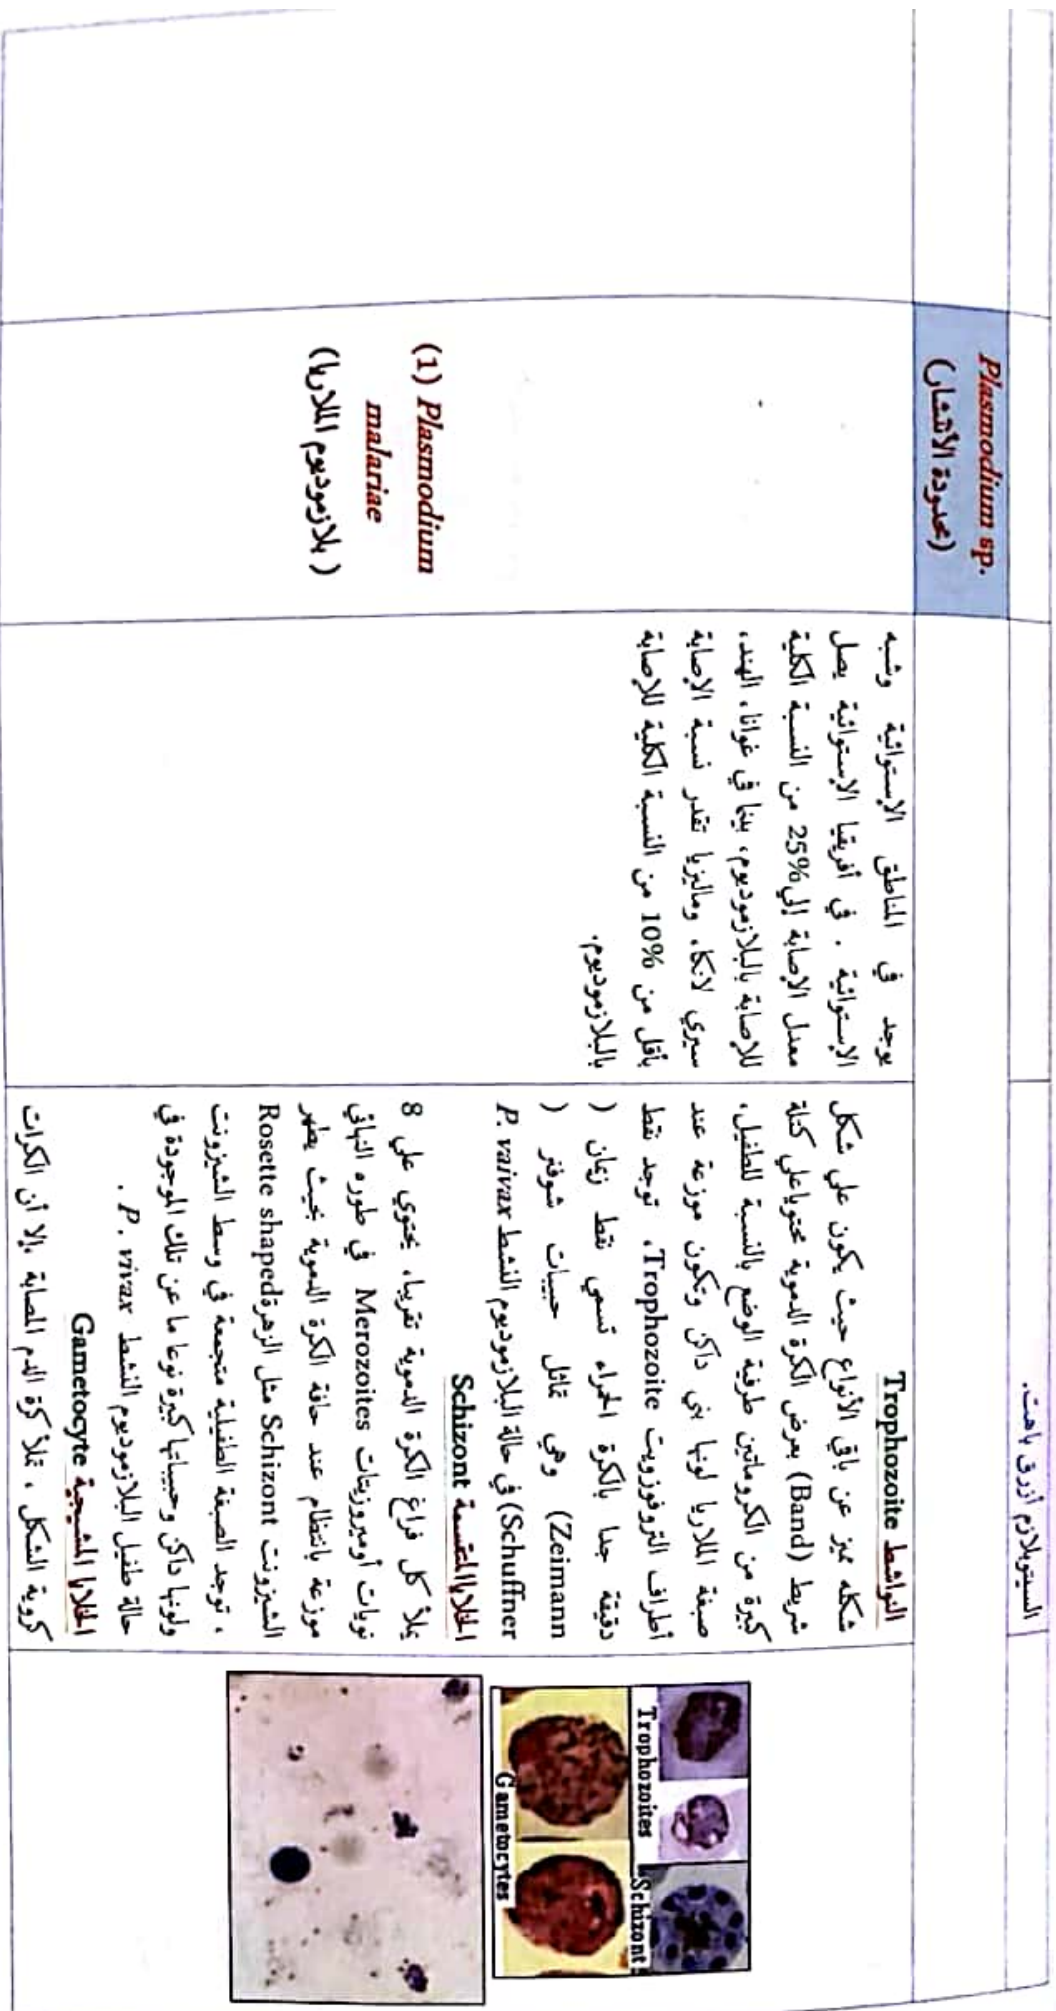 السيتوبلازم أزرق باهت.
Plasmodium sp.
(محدودة الأنتشار)
(1) Plasmodium
malariae
( بلازموديوم الملاريا)
يوجد في المناطق الإستوائية وشبه
الإستوائية . في أفريقيا الإستوائية يصل
معدل الإصابة إلي 25% من النسبة الكلية
للإصابة بالبلازموديوم، بينما في غوانا، الهند،
سيري لانكا، وماليزيا تقدر نسبة الإصابة
بأقل من 10% من النسبة الكلية للإصابة
بالبلازموديوم.
التراشط Trophozoite
شكله مميز عن باقي الأنواع حيث يكون علي شكل
شريط (Band) بعرض الكرة الدموية محتوياعلي كتلة
كبيرة من الكروماتين طرفية الوضع بالنسبة للطفيل،
صبغة الملاريا لونها بني داكن وتكون موزعة عند
أطراف التروفوزويت Trophozoite، توجد نقط
دقيقة جدا بالكرة الحمراء تسمي نقط زيمان (
Zeimann) وهي تماثل حبيبات شوفنر (
Schuffner) في حالة البلازموديوم النشط P. vaivax
الخلاياالمنقسمة Schizont
يملأ كل فراغ الكرة الدموية تقريبا، يحتوي علي 8
نويات أوميروزيتات Merozoites في طوره النهائي
موزعة بانتظام عند حافة الكرة الدموية بحيث يظهر
الشيزونت Schizont مثل الزهرة Rosette shaped
، توجد الصبغة الطفيلية متجمعة في وسط الشيزونت
ولونها داكن وحبيباتها كبيرة نوعا ما عن تلك الموجودة في
حالة طفيل البلازموديوم النشط P. vivax .
الخلايا المشيجية Gametocyte
كروية الشكل ، تملأ كرة الدم المصابة إلا أن الكرات
Trophozoites
Schizont
Gametocytes